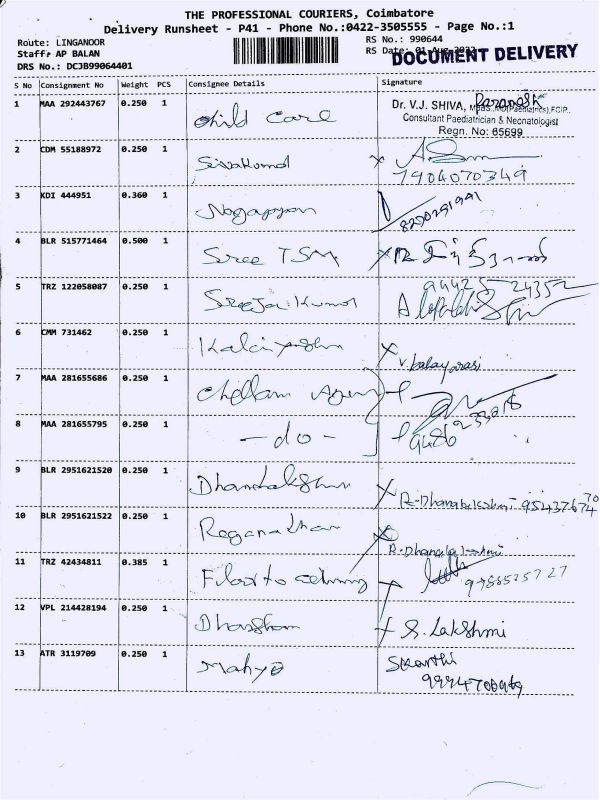 THE PROFESSIONAL COURIERS, Coimbatore
Delivery Runsheet - P41 - Phone No.:0422-3505555 - Page No.:1
Route: LINGANOOR
RS No.: 990644
Staff: AP BALAN
RS Date: 01-Aug-2022
DOCUMENT DELIVERY
DRS No.: DCJB99064401
S No Consignment No Weight PCS Consignee Details Signature
1 MAA 292443767 0.250 1 Child Care
Dr. V.J. SHIVA, MBBS., MD(Paediatrics),FCIP.,
Consultant Paediatrician & Neonatologist
Regn. No: 65699
2 CDM 55188972 0.250 1 Sivakumar
7904070349
3 KDI 444951 0.360 1 Nagappan
8220291991
4 BLR 515771464 0.500 1 Sree TSM
5 TRZ 122058087 0.250 1 Sreejaikumar
94425 24352
6 CMM 731462 0.250 1
V. balayarasi
7 MAA 281655686 0.250 1 Chellam Agency
8 MAA 281655795 0.250 1 - do -
9 BLR 2951621520 0.250 1 Dhanalakshmi
R-Dhanalakshmi 9543767470
10 BLR 2951621522 0.250 1 Reganathan
R-Dhanalakshmi
11 TRZ 42434811 0.385 1
12 VPL 214428194 0.250 1 S. Lakshmi
13 ATR 3119709 0.250 1